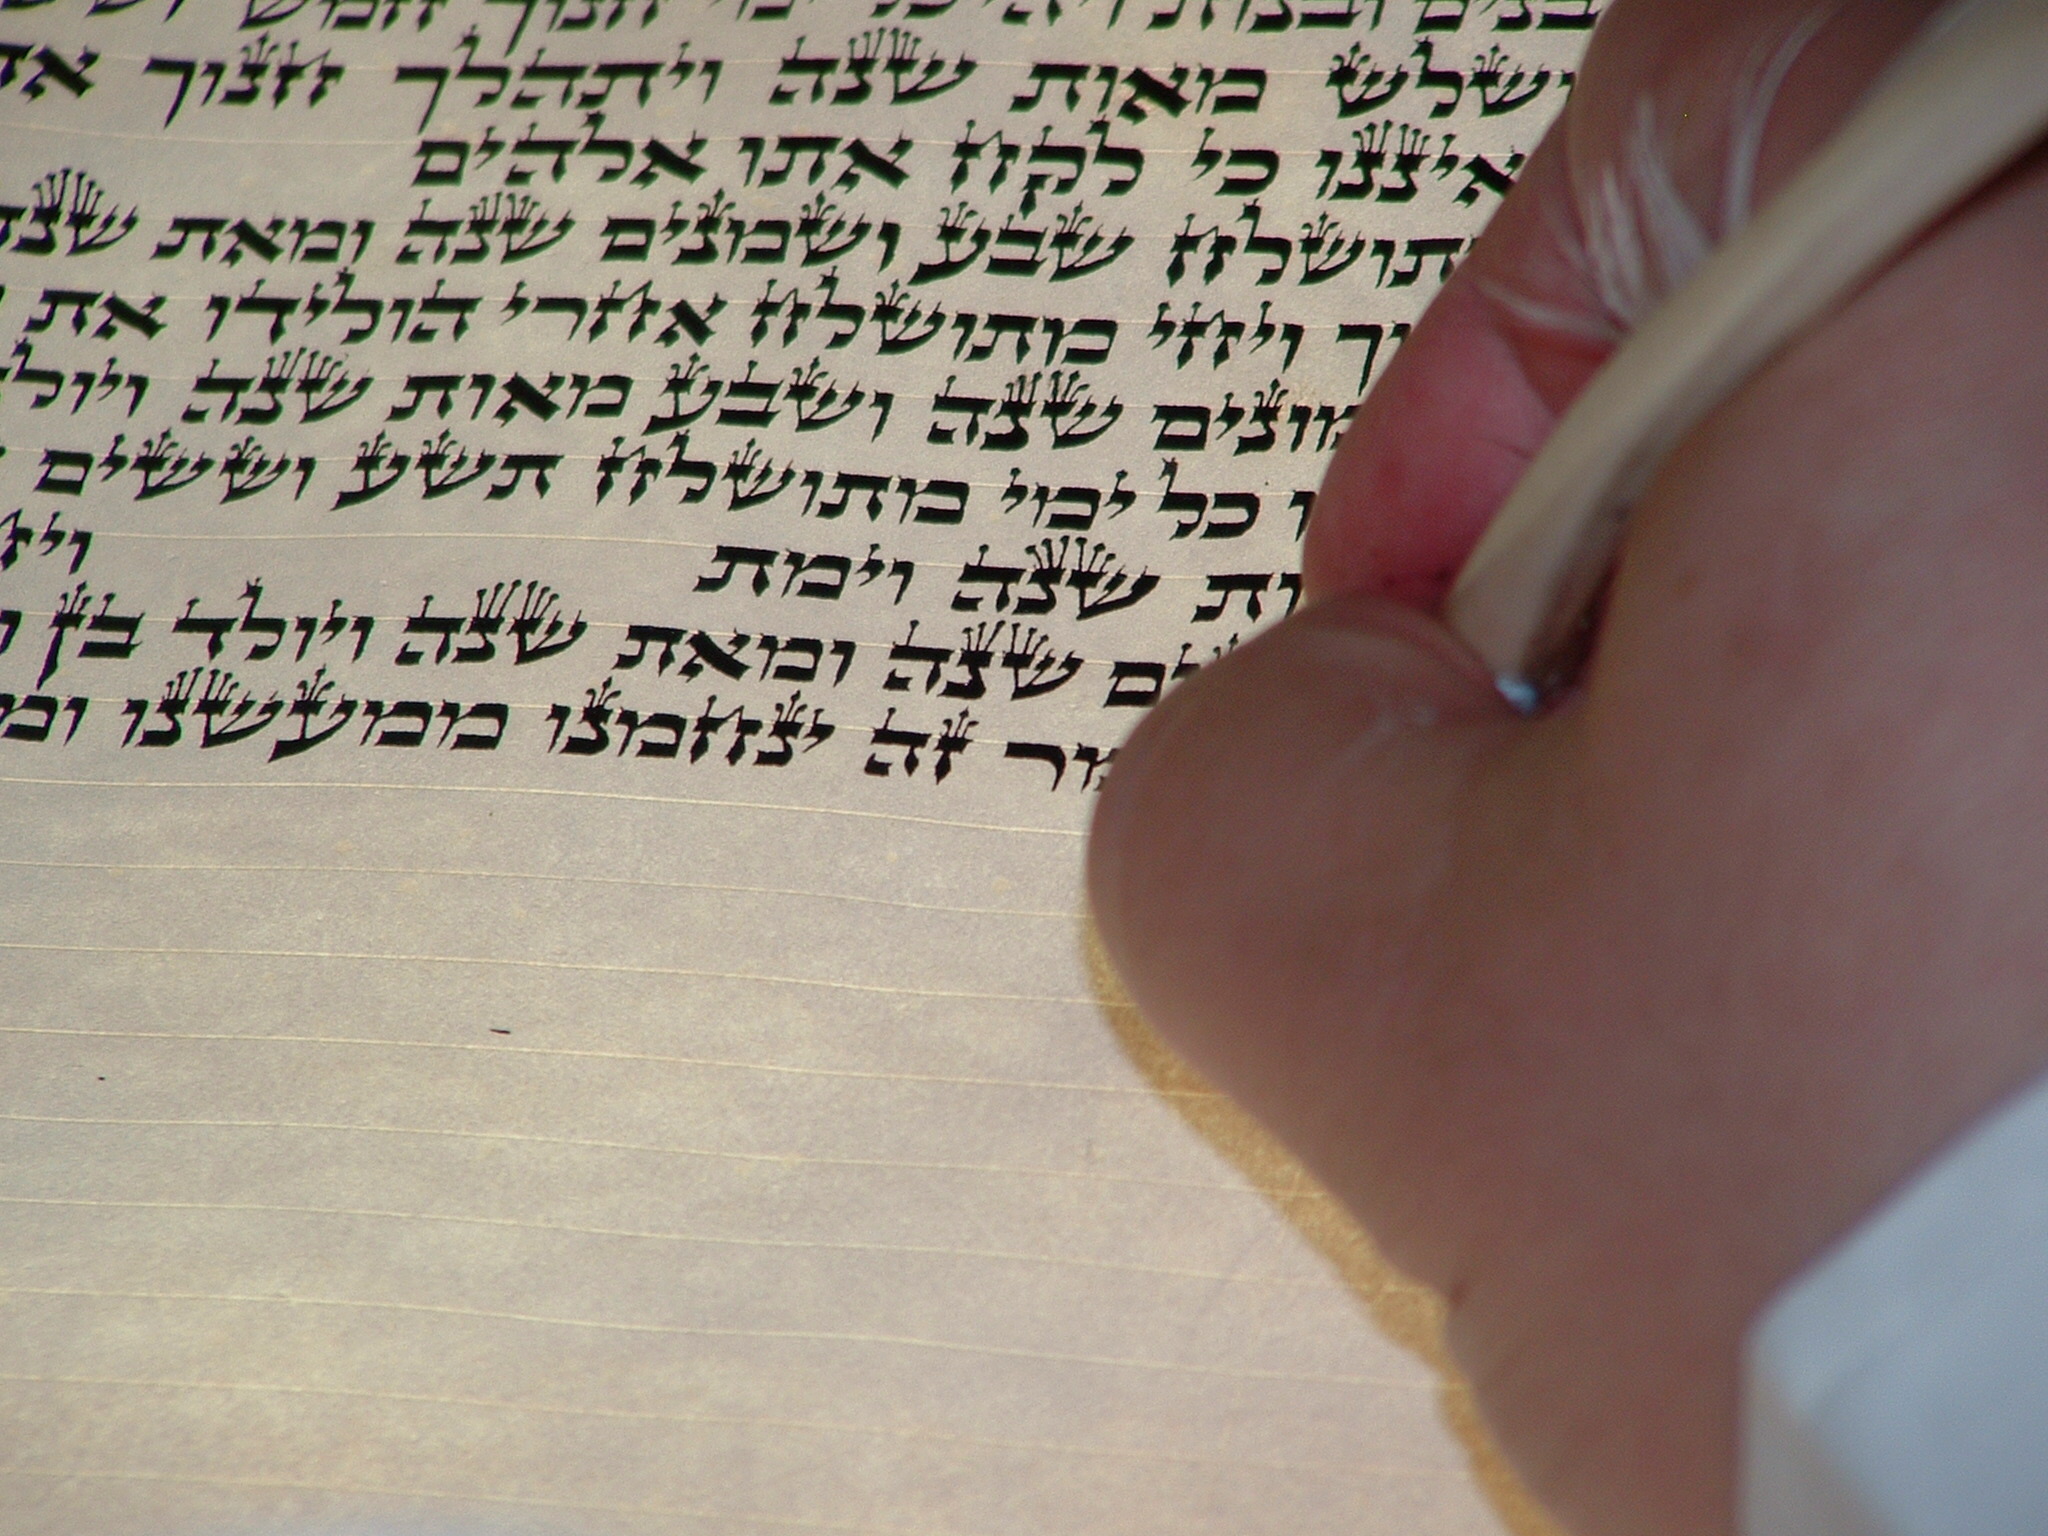 ובנים ובנות ויהי כל ימי חנוך חמש
ושלש מאות שנה ויתהלך חנוך את
איננו כי לקח אתו אלהים
מתושלח שבע ושמנים שנה ומאת שנה
ויחי מתושלח אחרי הולידו את
ושמונים שנה ושבע מאות שנה ויולד
כל ימי מתושלח תשע וששים
מאות שנה וימת
שנה ומאת שנה ויולד בן
זה ינחמנו ממעשנו